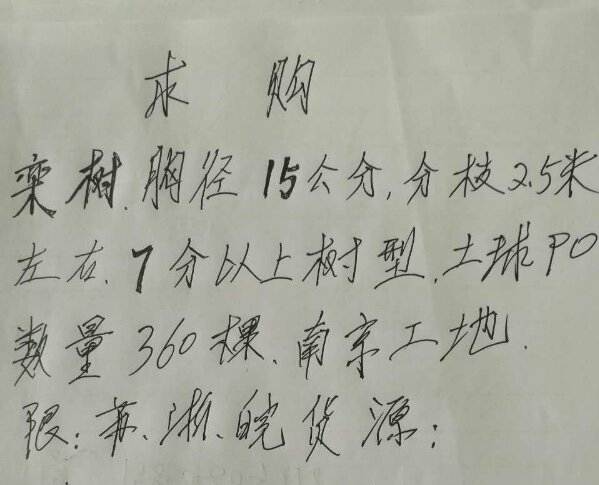 求购
栾树.胸径15公分,分枝2.5米
左右.7分以上树型.土球90
数量360棵.南京工地.
限:苏.浙.皖货源: